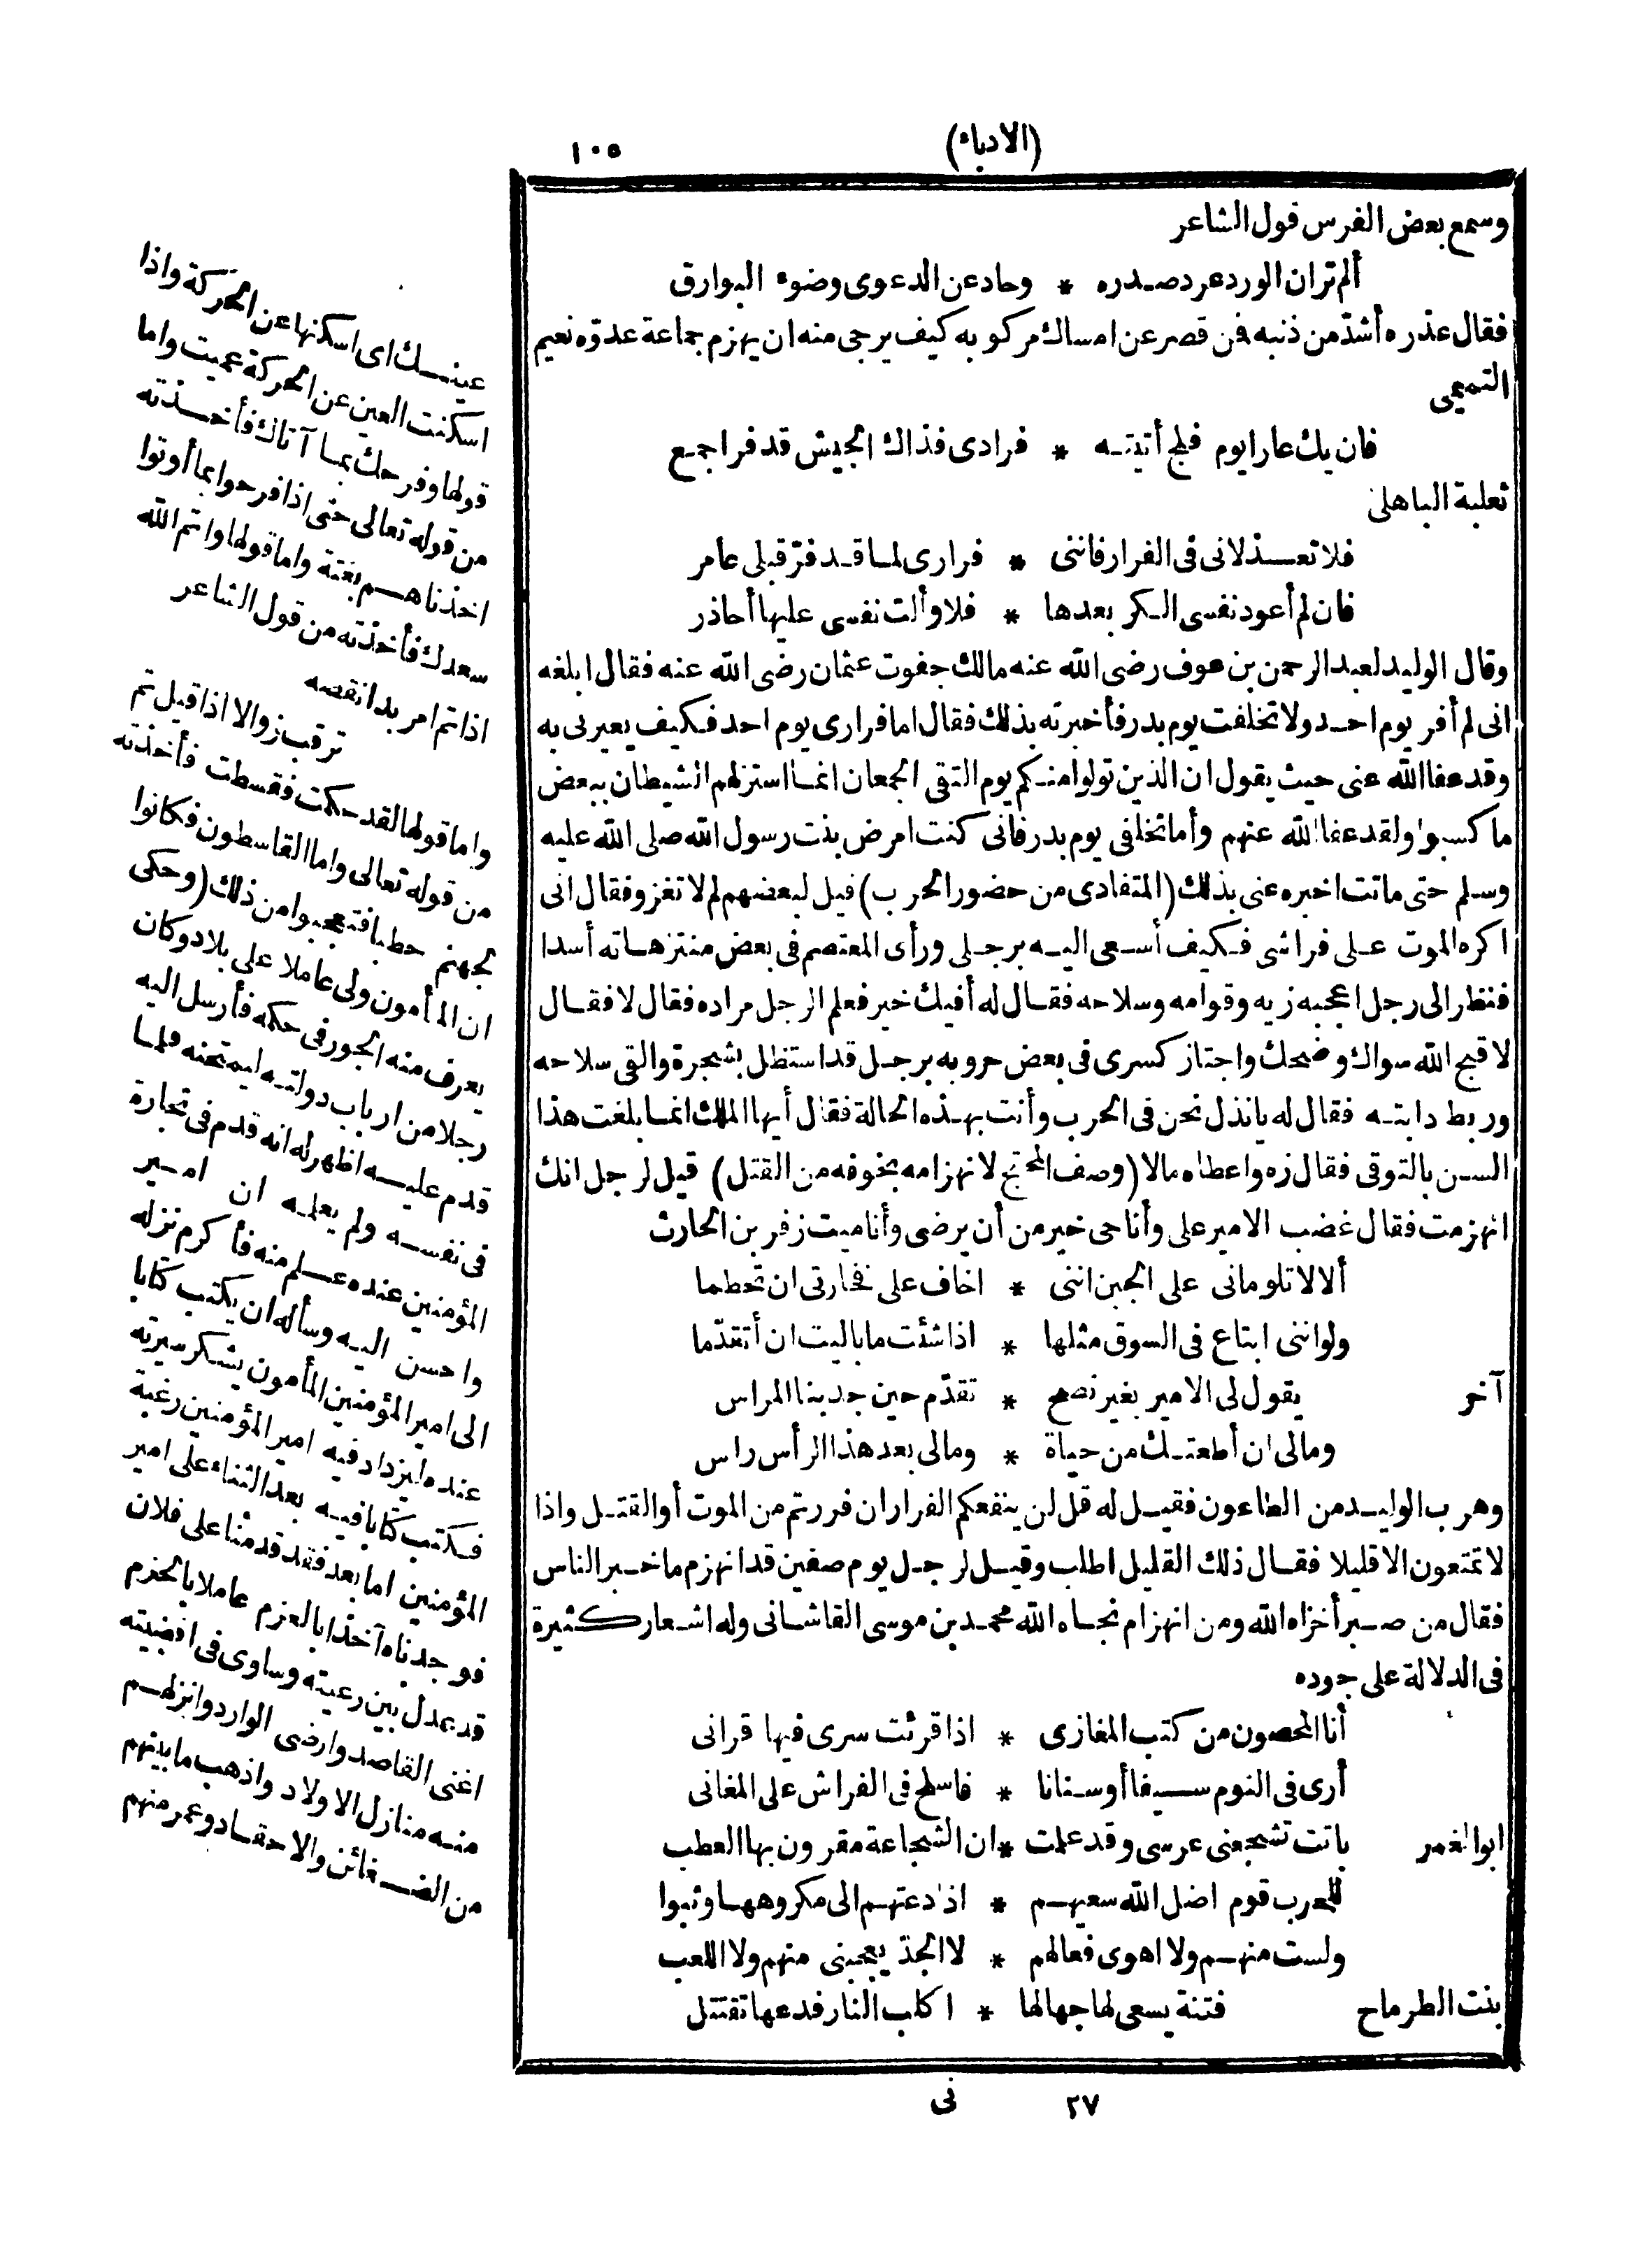 (الادباء)
١٠٥
وسمع بعض الفرس قول الشاعر
ألم تر ان الورد عرد صدره * وحاد عن الدعوى وضوء البوارق
فقال عذره أشدّ من ذنبه فمن قصر عن امساك مركوبه كيف يرجى منه ان يهزم جماعة عدوّه نعيم
التميمى
فان يك عارا يوم فلج أتيته * فرارى فذاك الجيش قد فر اجمع
ثعلبة الباهلى
فلا تعذلانى فى الفرار فاننى * فرارى لما قد فرّ قبلى عامر
فان لم أعود نفسى الكر بعدها * فلا وألت نفسى عليها أحاذر
وقال الوليد لعبد الرحمن بن عوف رضى الله عنه مالك جفوت عثمان رضى الله عنه فقال ابلغه
انى لم أفر يوم احد ولا تخلفت يوم بدر فأخبرته بذلك فقال اما فرارى يوم احد فكيف يعيرنى به
وقد عفا الله عنى حيث يقول ان الذين تولوا منكم يوم التقى الجمعان انما استزلهم الشيطان ببعض
ما كسبوا ولقد عفا الله عنهم وأما تخلفى يوم بدر فانى كنت امرض بنت رسول الله صلى الله عليه
وسلم حتى ماتت اخبره عنى بذلك (المتفادى من حضور الحرب) قيل لبعضهم لم لا تغزو فقال انى
اكره الموت على فراشى فكيف أسعى اليه برجلى ورأى المعتصم فى بعض منتزهاته أسدا
فنظر الى رجل اعجبه زيه وقوامه وسلاحه فقال له أفيك خير فعلم الرجل مراده فقال لا فقال
لا قبح الله سواك وضحك واجتاز كسرى فى بعض حروبه برجل قد استظل بشجرة والقى سلاحه
وربط دابته فقال له يا نذل نحن فى الحرب وأنت بهذه الحالة فقال أيها الملك انما بلغت هذا
السن بالتوقى فقال زه واعطاه مالا (وصف المحتج لانهزامه بخوفه من القتل) قيل لرجل انك
انهزمت فقال غضب الامير على وأنا حى خير من أن يرضى وأنا ميت زفر بن الحارث
ألا لا تلومانى على الجبن اننى * اخاف على فخارتى ان تحطما
ولو اننى ابتاع فى السوق مثلها * اذا شئت ما باليت ان أتقدّما
آخر يقول لى الامير بغير نصح * تقدّم حين جد بنا المراس
ومالى ان أطعتك من حياة * ومالى بعد هذا الرأس راس
وهرب الوليد من الطاعون فقيل له قل لن ينفعكم الفرار ان فررتم من الموت أو القتل واذا
لا تمتعون الا قليلا فقال ذلك القليل اطلب وقيل لرجل يوم صفين قد انهزم ما خبر الناس
فقال من صبر أخزاه الله ومن انهزام نجاه الله محمد بن موسى القاشانى وله اشعار كثيرة
فى الدلالة على جوده
أنا المحصون من كتب المغازى * اذا قرئت سرى فيها قرانى
أرى فى النوم سيفا أو سنانا * فاسلح فى الفراش على المغانى
ابو الغمر باتت تشجعنى عرسى وقد علمت * ان الشجاعة مقرون بها العطب
للحرب قوم اضل الله سعيهم * اذ دعتهم الى مكروهها وثبوا
ولست منهم ولا اهوى فعالهم * لا الجدّ يعجبنى منهم ولا اللعب
بنت الطرماح فتنة يسعى لها جهالها * اكلب النار فدعها تقتتل
٢٧ نى
عينك اى اسكنها عن الحركة واذا
اسكنت العين عن الحركة عميت واما
قولها وفرحك بما آتاك فأخذته
من قوله تعالى حتى اذا فرحوا بما أوتوا
اخذناهم بغتة واما قولها واتم الله
سعدك فأخذته من قول الشاعر
اذا تم امر بدا نقصه
ترقب زوالا اذا قيل تم
واما قولها لقد حكمت فقسطت فأخذته
من قوله تعالى واما القاسطون فكانوا
لجهنم حطبا فتعجبوا من ذلك (وحكى
ان المأمون ولى عاملا على بلاد وكان
يعرف منه الجور فى حكمه فأرسل اليه
رجلا من ارباب دولته ليمتحنه فلما
قدم عليه اظهر له انه قدم فى تجارة
فى نفسه ولم يعلمه ان امير
المؤمنين عنده علم منه فأكرم نزله
واحسن اليه وسأله ان يكتب كتابا
الى امير المؤمنين المأمون يشكر سيرته
عنده ليزداد فيه امير المؤمنين رغبة
فكتب كتابا فيه بعد الثناء على امير
المؤمنين اما بعد فقد قدمنا على فلان
فوجدناه آخذا بالعزم عاملا بالحزم
قد عدل بين رعيته وساوى فى اقضيته
اغنى القاصد وارضى الوارد وانزلهم
منه منازل الاولاد واذهب ما بينهم
من الضغائن والاحقاد وعمر منهم